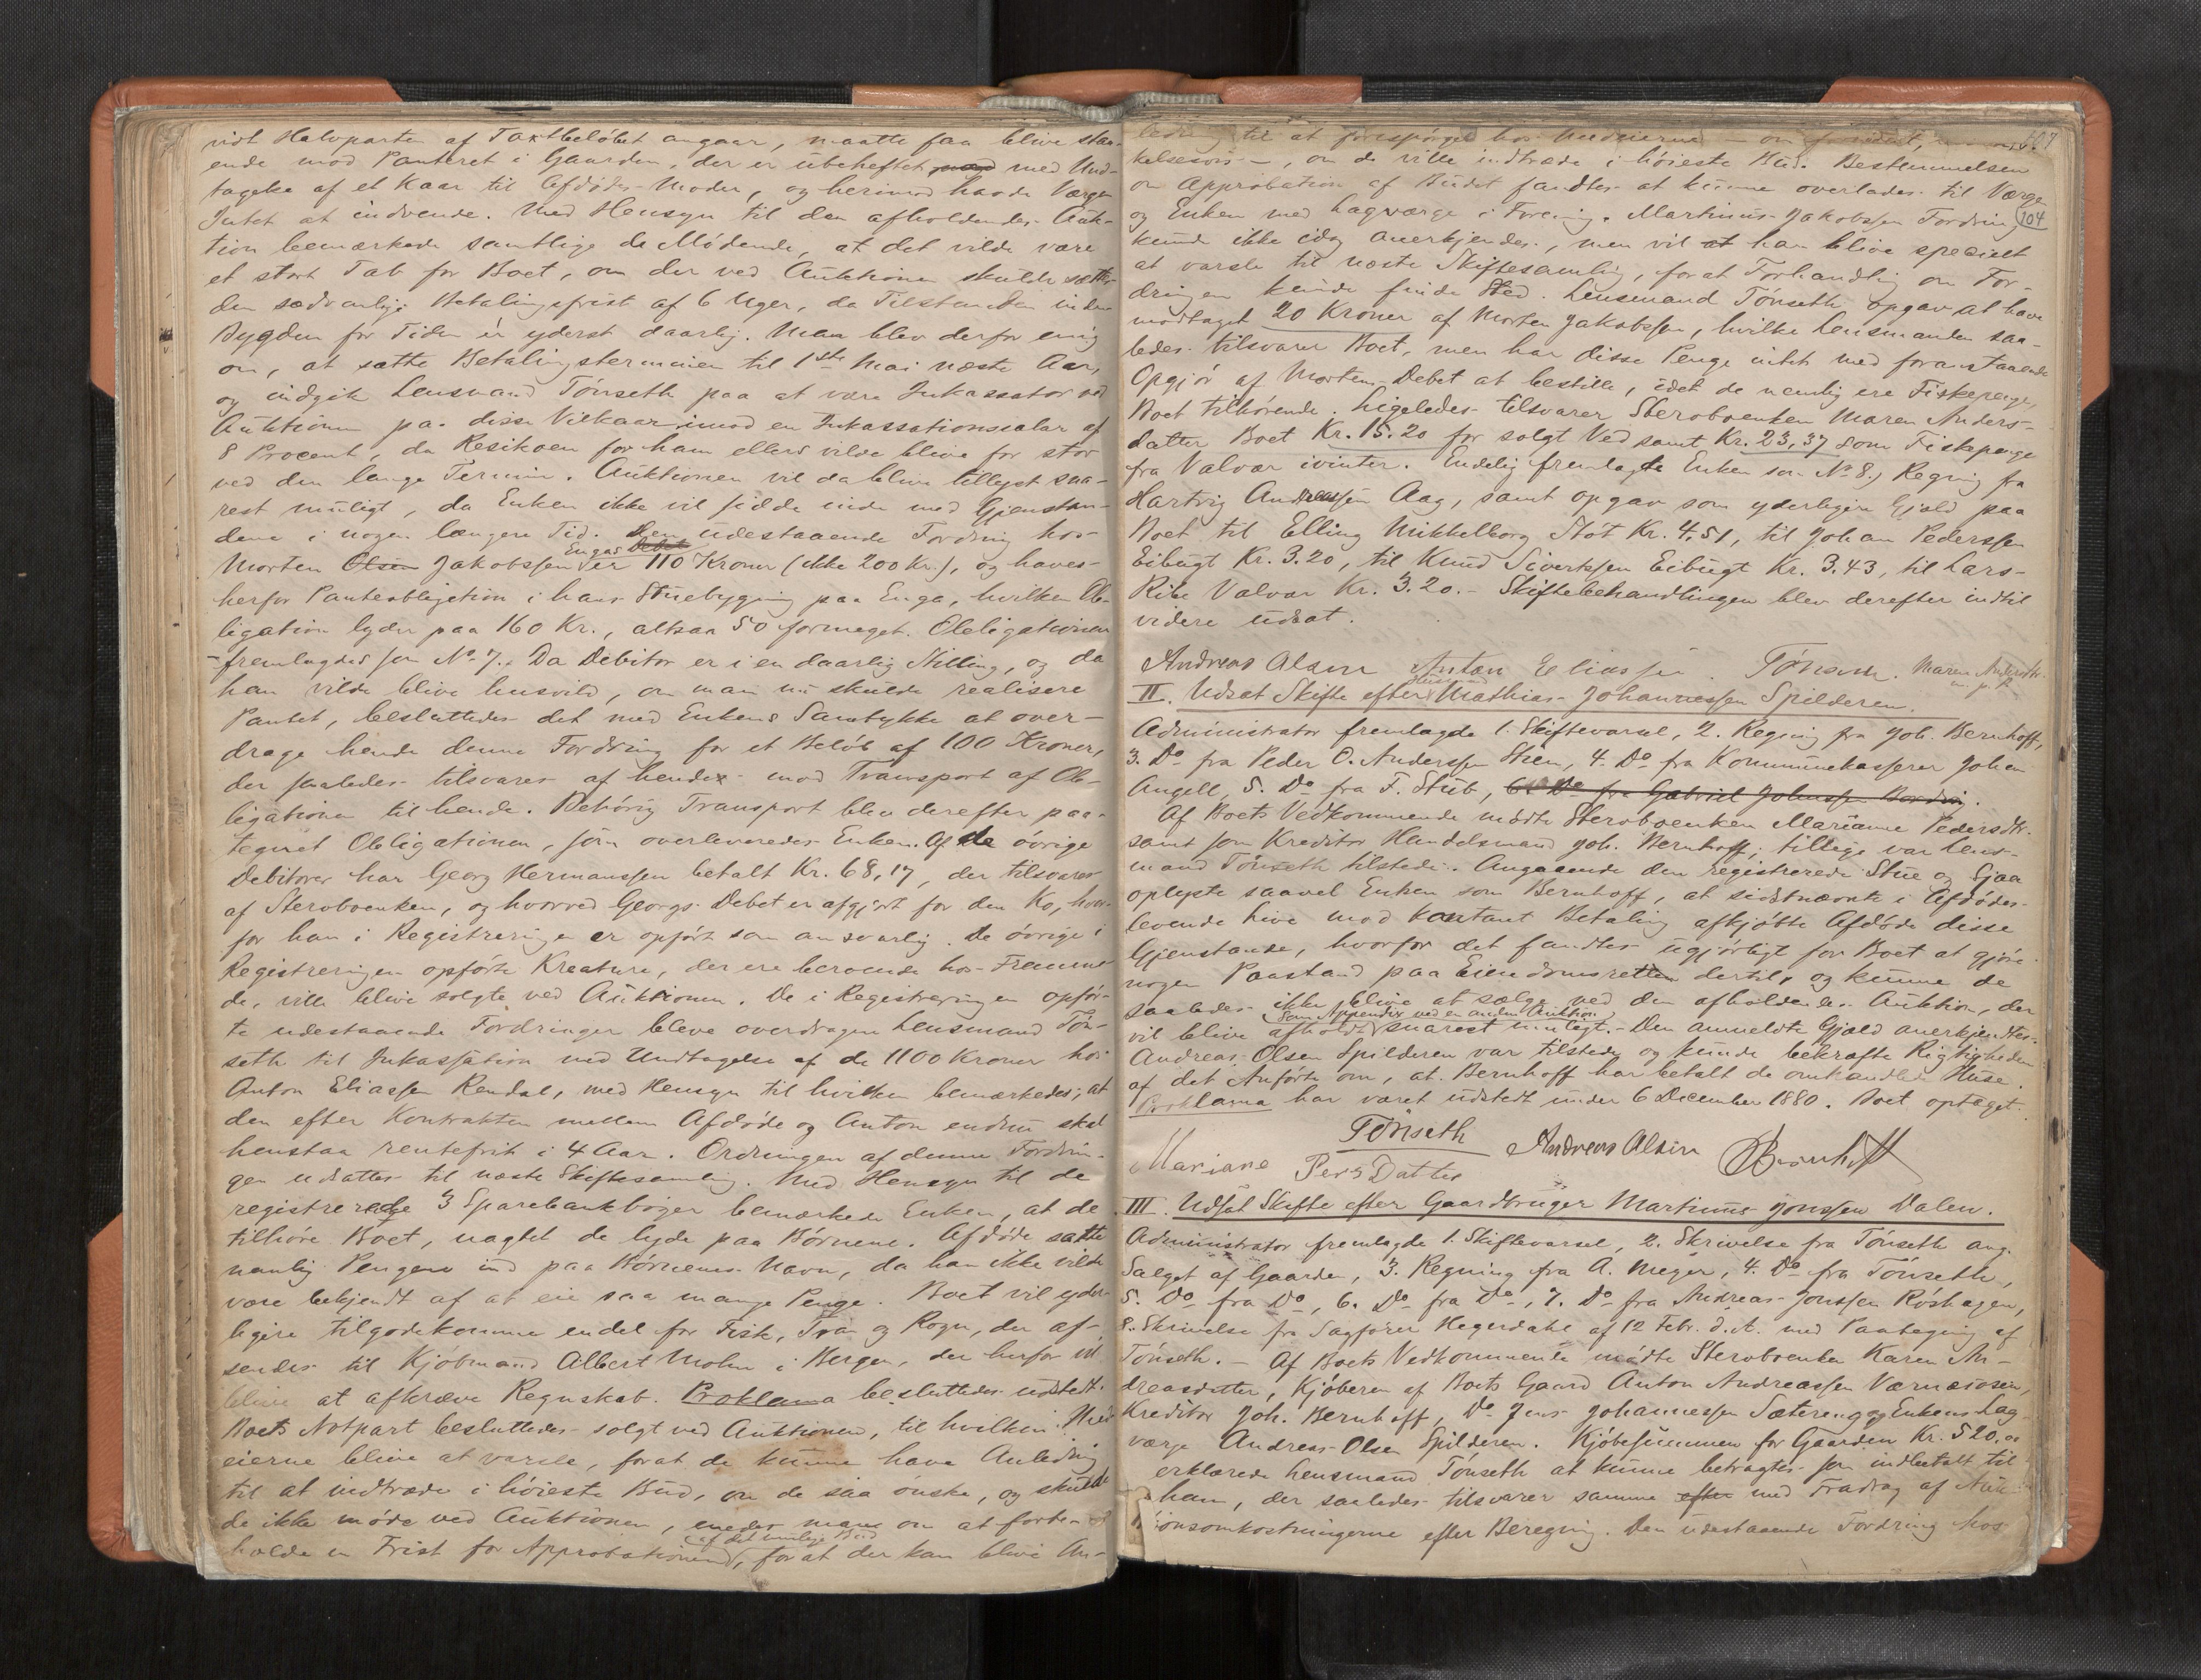 vidt Halvparten af Taxtbeløbet angaar, maatte faa blive staa-
ende mod Panteret i Gaarden, der er ubeheftet med Und-
tagelse af et Kaar til Afdødes Moder, og herimod havde Værgen
Intet at indvende. Med Hensyn til den afholdendes Auk-
tion bemærkede samtlige de Mødende, at det vilde være
et stort Tab for Boet, om der ved Auktionen skulde sættes
den sædvanlige Betalingsfrist af 6 Uger, da Tilstanden inden
Bygden for Tiden er yderst daarlig. Man blev derfor enig
om, at sætte Betalingsterminen til 1ste Mai næste Aar,
og indgik Lensmand Tønseth paa at være Inkassator ved
Auktionen paa disse Vilkaar imod en Inkassationssalær af
8 Procent, da Resikoen for ham ellers vilde blive for stor
ved den lange Termin. Auktionen vil da blive tillyst sna-
rest muligt, da Enken ikke vil sidde inde med Gjenstan-
dene i nogen længere Tid. Den udestaaende Fordring hos
Morten Olsen Jakobssen Engas Debet er 110 Kroner (ikke 200 Kr.), og haves
herfor Panteobligation i hans Stuebygning paa Enga, hvilken Ob-
ligation lyder paa 160 Kr., altsaa 50 formeget. Obligationen
fremlagdes som No 7. Da Debitor er i en daarlig Stilling, og da
han vilde blive husvild, om man nu skulde realisere
Pantet, besluttedes det med Enkens Samtykke at over-
drage hende denne Fordring for et Beløb af 100 Kroner,
der saaledes tilsvares af hende mod Transport af Ob-
ligationen til hende. Behørig Transport blev derefter paa-
tegnet Obligationen, som overleveredes Enken. Af de øvrige
Debitorer har Georg Hermanssen betalt Kr. 68,17, der tilsvares
af Sterboenken, og hvorved Georgs Debet er afgjort for den Ko, hvor-
for han i Registreringen er opført som ansvarlig. De øvrige i
Registreringen opførte Kreature, der ere beroende hos Fremme-
de, ville blive solgte ved Auktionen. De i Registreringen opfør-
te udestaaende Fordringer bleve overdragne Lensmand Tøn-
seth til Inkassation med Undtagelse af de 1100 Kroner hos
Anton Eliassen Rendal, med Hensyn til hvilken bemærkedes, at
den efter Kontrakten mellem Afdøde og Anton endnu skal
henstaa rentefrit i 4 Aar. Ordningen af denne Fordrin-
gen udsattes til næste Skiftesamling. Med Hensyn til de
registrerede 3 Sparebankbøger bemærkede Enken, at de
tilhøre Boet, uagtet de lyde paa Børnene. Afdøde satte
nemlig Pengene ind paa Børnenes Navn, da han ikke vilde
være bekjendt af at eie saa mange Penge. Boet vil yder-
ligere tilgodekomme endel for Fisk, Tran og Rogn, der af-
sendes til Kjøbmand Albert Mohn i Bergen, der herfor vil
blive at afkræve Regnskab. Proklama besluttedes udstedt.
Boets Notpart besluttedes solgt ved Auktionen, til hvilken Med-
eierne blive at varsle, forat de kunne have Anledning
til at indtræde i høieste Bud, om de saa ønske, og skulde
de ikke møde ved Auktionen, enedes man om at forbe-
holde en Frist for Approbationen (af det endelige Bud), forat der kan blive An-
ledning til at forespørges hos Medeierne
kelsesvis –, om de ville indtræde i høieste Bud. Bestemmelsen
om Approbation af Budet fandtes at kunne overlades til Værgen
og Enken med Lagværge i Forening. Martinus Jakobssen Fordring
104
kunde ikke idag anerkjendes, men vil at han blive specielt
at varsle til næste Skiftesamling, forat Forhandling om For-
dringen kunde finde Sted. Lensmand Tønseth opgav at have
modtaget 20 Kroner af Morten Jakobssen, hvilke Lensmanden saa-
ledes tilsvarer Boet, men har disse Penge intet med foranstaaende
Opgjør af Mortens Debet at bestille, idet de nemlig ere Fiskepenge,
Boet tilhørende. Ligeledes tilsvarer Sterboenken Maren Anders-
datter Boet Kr. 15.20 for solgt Ved samt Kr. 23,37 som Fiskepenge
fra Valvær ivinter. Endelig fremlagte Enken som No 8.) Regning fra
Hartvig Andreassen Aag, samt opgav som yderligere Gjæld paa
Boet til Elling Mikkelborg Støt Kr. 4,51, til Johan Pederssen
Eibugt Kr. 3.20, til Knud Sivertssen Eibugt Kr. 3.43, til Lars
Ribe Valvær Kr. 3.20. – Skiftebehandlingen blev derefter indtil
videre udsat.
Andreas Olsen Anton Eliassen. Tønseth. Maren Andersdtr.
m. p. P.
II. Udsat Skifte efter Mathias Johannessen Spilderen.
Administrator fremlagde 1. Skiftevarsel, 2. Regning fra Joh. Bernhoff,
3. Do fra Peder O. Anderssen Steen, 4. Do fra Kommunekasserer Johan
Angell, 5. Do fra F. Stub, 6. Do fra Gabriel Johnssen Bording.
Af Boets Vedkommende mødte Sterboenken Marianne Pedersdtr.
samt som Kreditor Handelsmand Joh. Bernhoff; tillige var Lens-
mand Tønseth tilstede. Angaaende den registrerede Stue og Gjaa
oplyste saavel Enken som Bernhoff, at sidstnævnte i Afdødes
levende Live mod kontant Betaling afkjøbte Afdøde disse
Gjenstande, hvorfor det fandtes ugjørligt for Boet at gjøre
nogen Paastand paa Eiendomsretten dertil, og kunne de
saaledes ikke blive at sælge ved den afholdendes Auktion, der
vil blive afholdt (som Appendix ved en anden Auktion) snarest muligt. – Den anmeldte Gjæld anerkjendtes.
Andreas Olsen Spilderen var tilstede og kunde bekræfte Rigtigheden
af det Anførte om, at Bernhoff har betalt de omhandlede Huse.
Proklama har været udstedt under 6 December 1880. Boet optaget.
Tønseth Andreas Olsen JBernhoff
Mariane Pers Datter
III. Udsat Skifte efter Gaardbruger Martinus Jonssen Dalen.
Administrator fremlagde 1. Skiftevarsel, 2. Skrivelse fra Tønseth ang.
Salget af Gaarden, 3. Regning fra A. Meyer, 4. Do fra Tønseth,
5. Do fra Do, 6. Do fra Do, 7. Do fra Andreas Jonssen Røshagen,
8. Skrivelse fra Sagfører Hegerdahl af 12 Febr. d. A. med Paategning af
Tønseth. – Af Boets Vedkommende mødte Sterboenken Karen An-
dreasdatter, Kjøberen af Boets Gaard Anton Andreassen
Kreditor Joh. Bernhoff, Do Jens Johannessen Sætereng og Enkens Lag-
værge Andreas Olsen Spilderen. Kjøbesummen for Gaarden Kr. 520.00
erklærede Lensmand Tønseth at kunne betragtes som indbetalt til
ham, der saaledes tilsvarer samme efter med Fradrag af Auk-
tionsomkostningerne efter Beregning. Den udestaaende Fordring hos